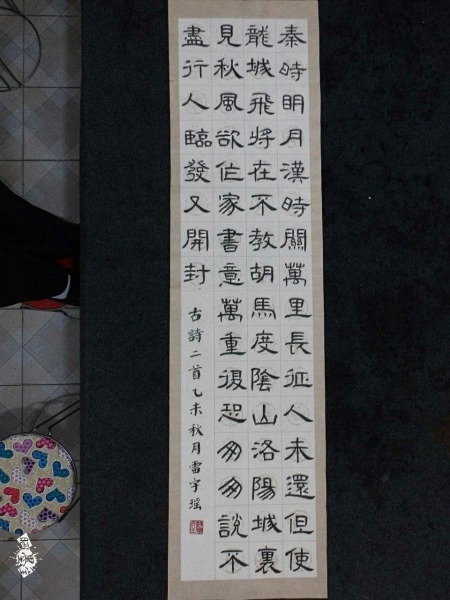 秦時明月漢時關萬里長征人未還但使
龍城飛將在不教胡馬度陰山洛陽城裏
見秋風欲作家書意萬重復恐匆匆說不
盡行人臨發又開封
古詩二首乙未秋月雷宇瑶